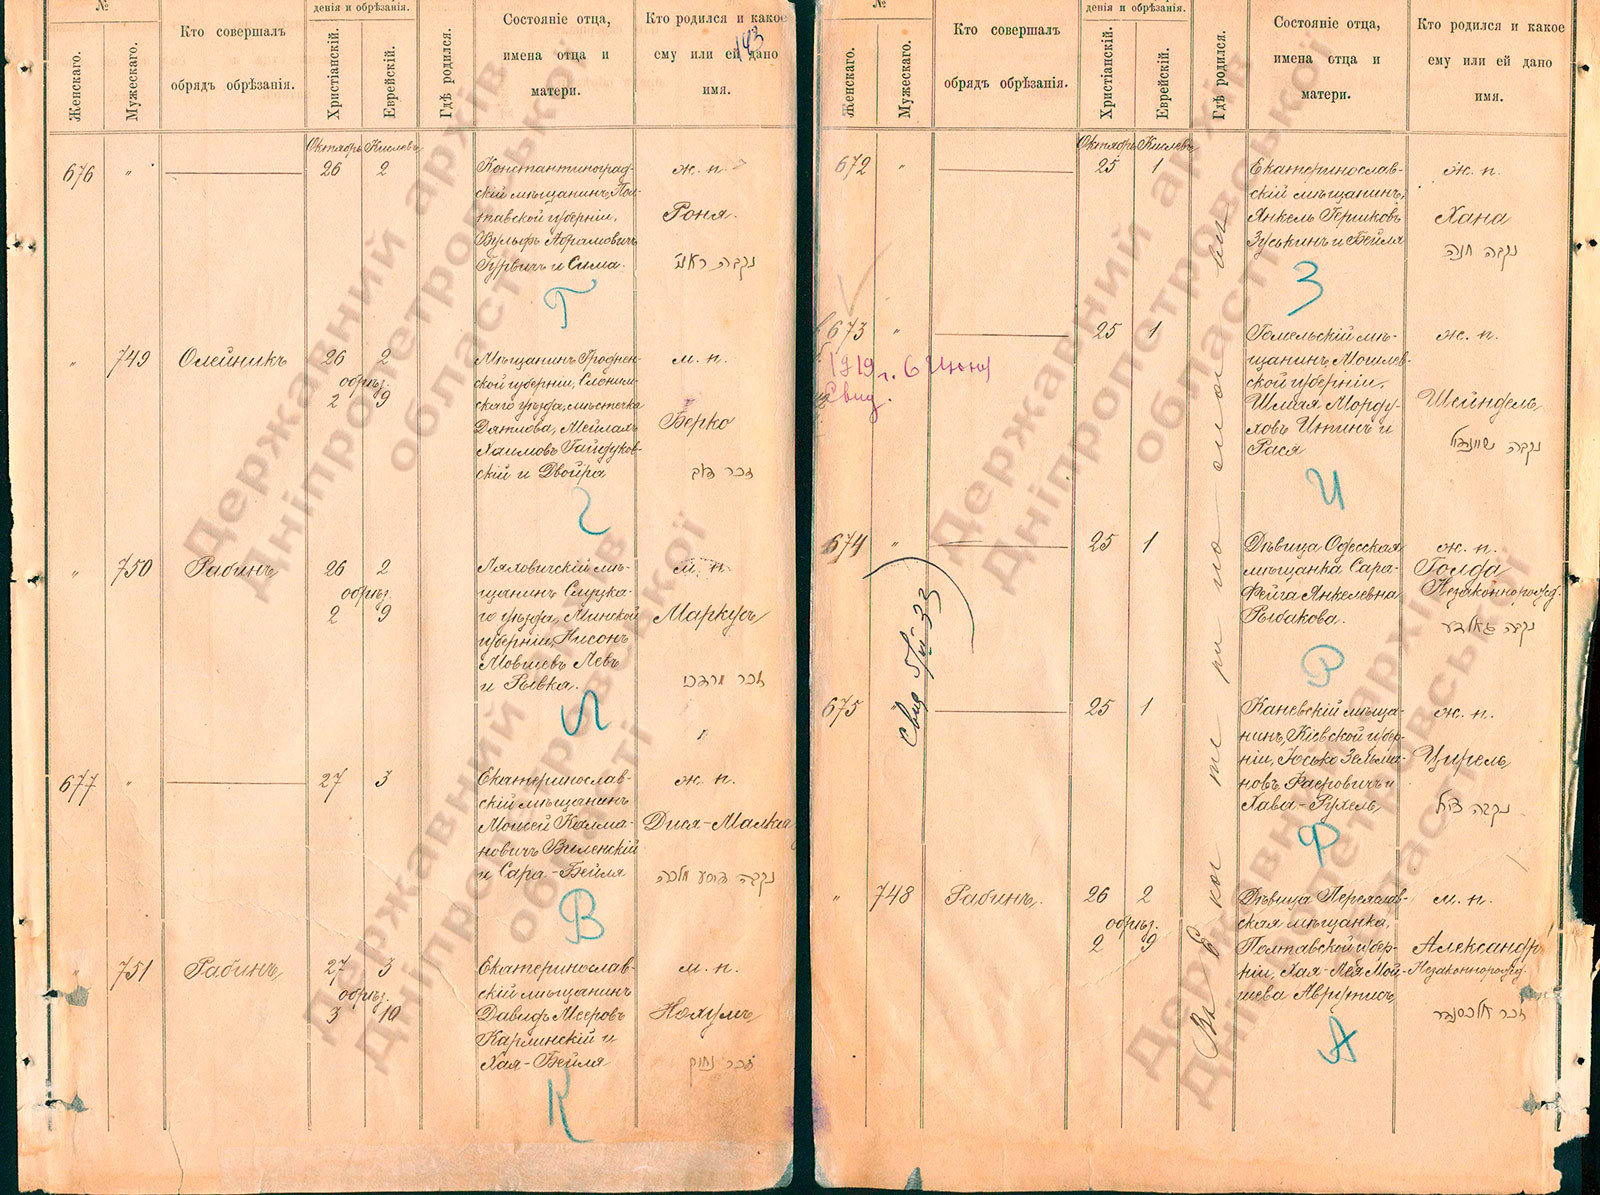 №
дения и обрѣзанія.
Женскаго.
Мужескаго.
Кто совершалъ
обрядъ обрѣзанія.
Христіанскій.
Еврейскій.
Гдѣ родился.
Состояніе отца,
имена отца и
матери.
Кто родился и какое
ему или ей дано
имя.
143
Октябрь Кислевъ
676 " 26 2
Константиноград-
скій мѣщанинъ, Пол-
тавской губерніи,
Вульфъ Абрамовичъ
Гурвичъ и Сима.
ж. п.
Роня.
Г
" 749 Олейникъ 26 2
обрѣз.
2 9
Мѣщанинъ Гроднен-
ской губерніи, Слоним-
скаго уѣзда, мѣстечка
Дятлова, Мейлахъ
Хаимовъ Гайдуков-
скій и Двойра
м. п.
Берко
זכר בערקא
Г
" 750 Рабинъ 26 2
обрѣз.
2 9
Ляховичскій мѣ-
щанинъ Слуцка-
го уѣзда, Минской
губерніи, Нисонъ
Мовшевъ Левъ
и Рывка.
м. п.
Маркусъ
זכר מרקוס
Л
677 " 27 3
Екатеринослав-
скій мѣщанинъ
Моисей Калма-
новичъ Виленскій
и Сара-Бейля
ж. п.
Дися-Малка
В
" 751 Рабинъ, 27 3
обрѣз.
3 10
Екатеринослав-
скій мѣщанинъ
Давидъ Мееровъ
Карлинскій и
Хая-Бейля
м. п.
Нохумъ
זכר נחום
К
№
дения и обрѣзанія.
Женскаго.
Мужескаго.
Кто совершалъ
обрядъ обрѣзанія.
Христіанскій.
Еврейскій.
Гдѣ родился.
Состояніе отца,
имена отца и
матери.
Кто родился и какое
ему или ей дано
имя.
Октябрь Кислевъ
672 " 25 1
Екатеринослав-
скій мѣщанинъ,
Янкель Гершковъ
Зуськинъ и Бейля
ж. п.
Хана
נקבה חנה
З
673 " 25 1
1919 г. 6 Июня
Свид.
Гомельскій мѣ-
щанинъ, Могилев-
ской губерніи,
Шмая Морду-
ховъ Иткинъ и
Рася
ж. п.
Шейндель
נקבה שיינדיל
И
674 " 25 1
Дѣвица Одесская
мѣщанка Сара-
Фейга Янкелевна
Рыбакова.
ж. п.
Голда
Незаконнорожд.
נקבה גאלדע
Р
675 " 25 1
Каневскій мѣща-
нинъ, Кіевской губер-
ніи, Юсько Зельма-
новъ Фаеровичъ и
Хава-Рухель,
ж. п.
Цирель
נקבה ציריל
Ф
" 748 Рабинъ. 26 2
обрѣз.
2 9
Дѣвица Переяслав-
ская мѣщанка,
Полтавской губер-
ніи, Хая-Лея Мой-
шева Аврутисъ,
м. п.
Александръ
Незаконнорожд.
זכר אלכסנדר
А
Въ Е ка те ри но сла вѣ
Державний архів
Дніпропетровської
області